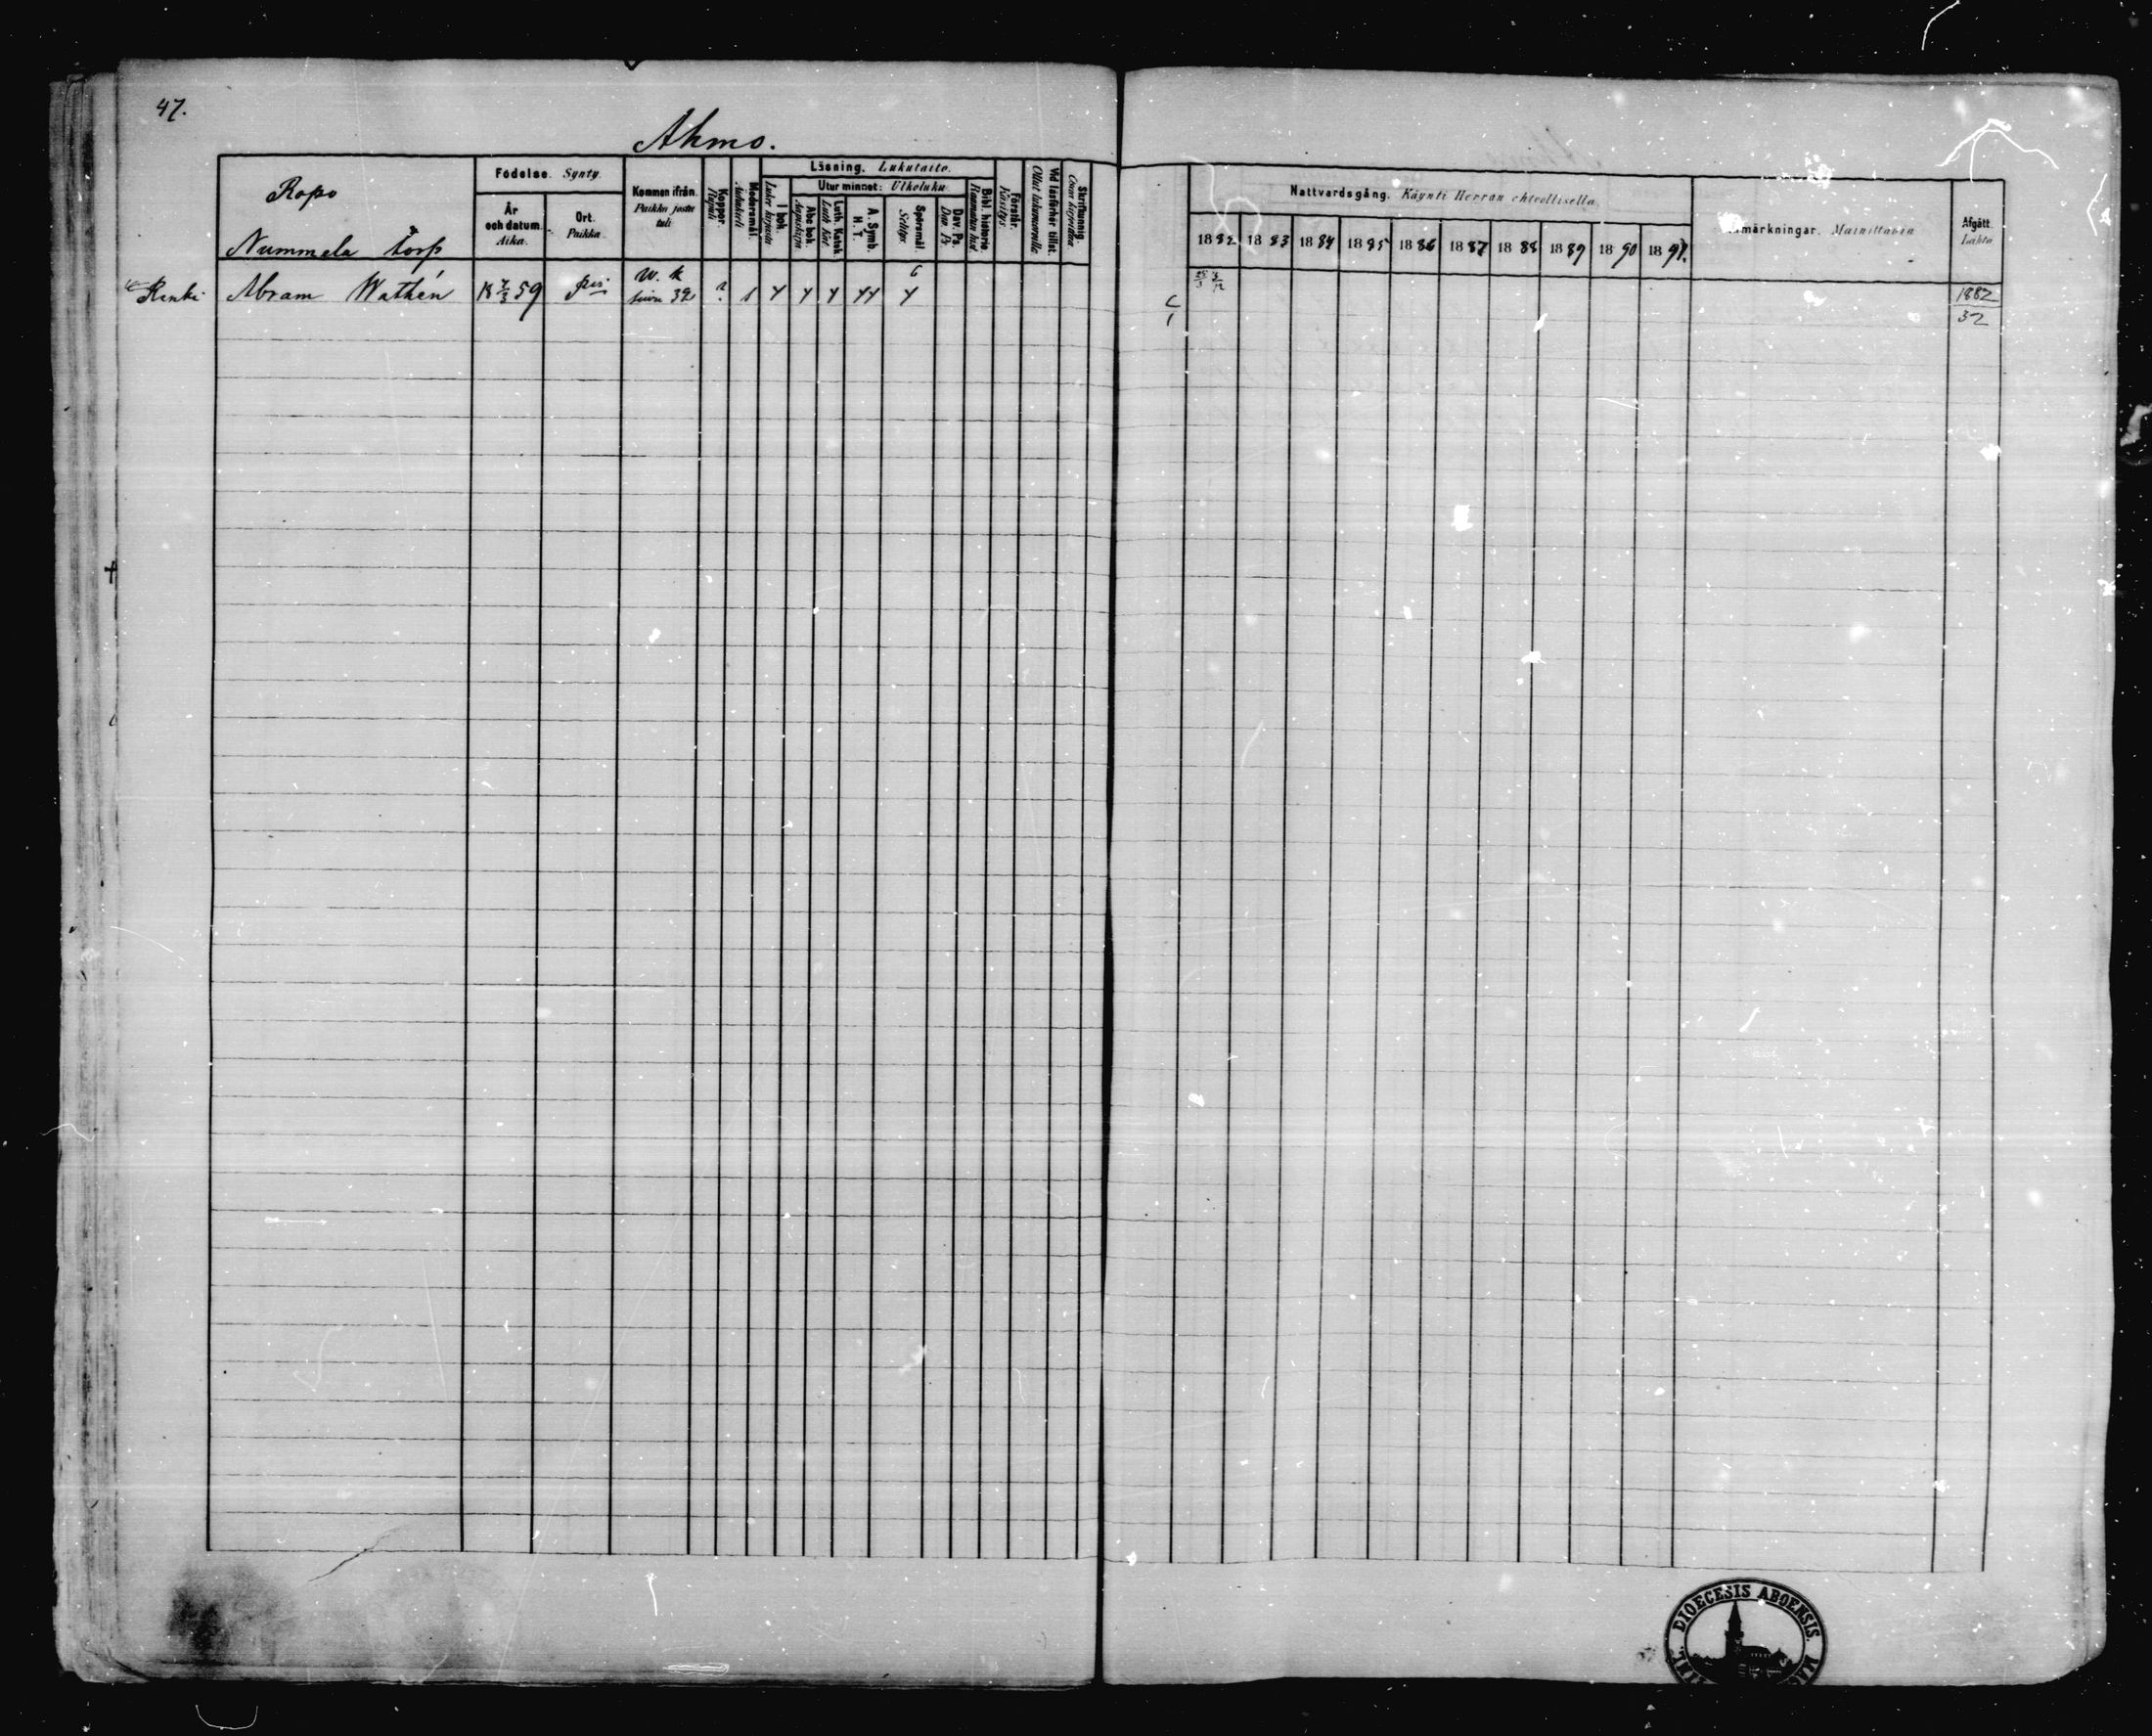 47.
Ahmo.
Ropo
Nummela torp
Födelse. Synty.
År och datum. Aika.
Ort. Paikka.
Kommen ifrån. Paikka josta tuli
Koppor. Rupuli
Modersmål. Äidinkieli
Läsning. Lukutaito.
I bok. Lukee kirjasta
Utur minnet: Ulkoluku.
Abc bok. Aapiskirja
Luth. Katek. Luth. Kat.
A. Symb. H. T.
Spörsmål. Selitys.
Dav. Ps. Dav. Ps.
Bibl. historia. Raamatun hist.
Förstår. Käsitys.
Vid läsförhör tillst. Ollut lukuvuorolla
Skrifkunnig. Osaa kirjoittaa
Nattvardsgång. Käynti Herran ehtoollisella.
1882 1883 1884 1885 1886 1887 1888 1889 1890 1891.
märkningar. Mainittavia
Afgått. Lahto
Renki Abram Wathén 18 7/3 59 W. k sivu 32 1 Y Y Y YY Y 1882
32
DIOECESIS ABOENSIS.